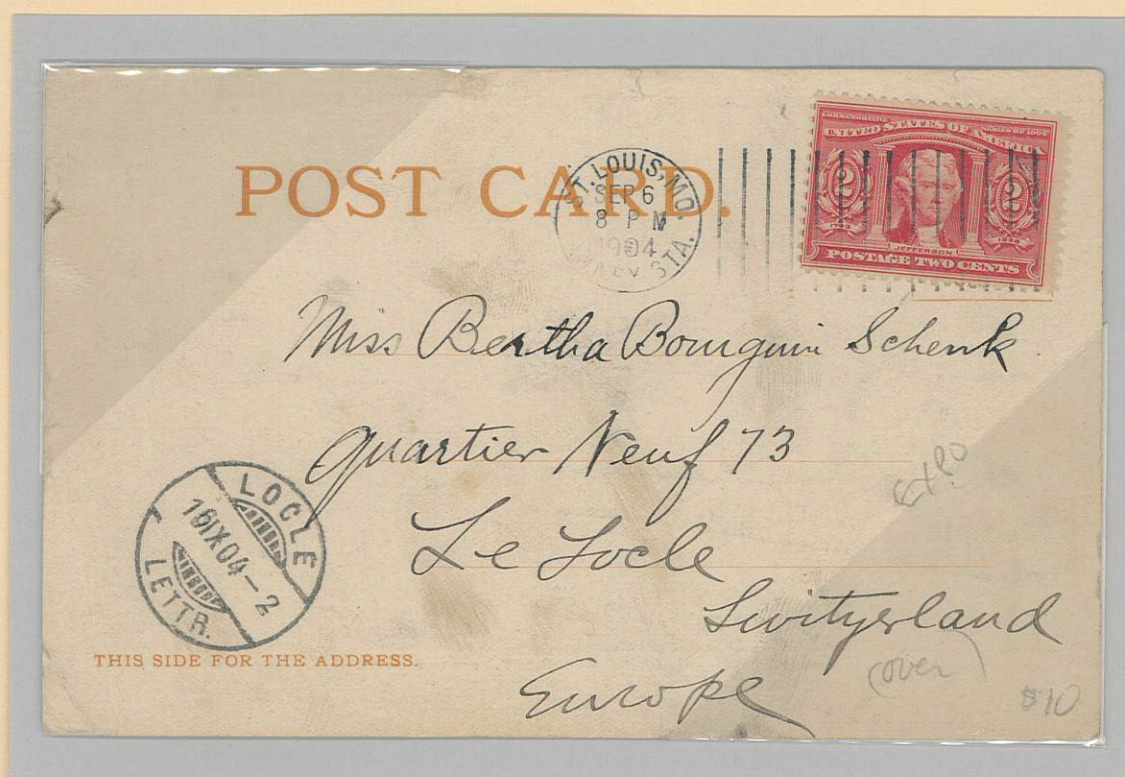 POST CARD.
ST. LOUIS, MO.
SEP 6
8 P M
1904
STA.
COMMEMORATIVE SERIES OF 1904
UNITED STATES OF AMERICA
2 2
JEFFERSON
POSTAGE TWO CENTS
Miss Bertha Bourquin Schenk
Quartier Neuf 73
Le Locle
Switzerland
Europe
Expo
(over)
$10
LOCLE
16IX04-2
LETTR.
THIS SIDE FOR THE ADDRESS.